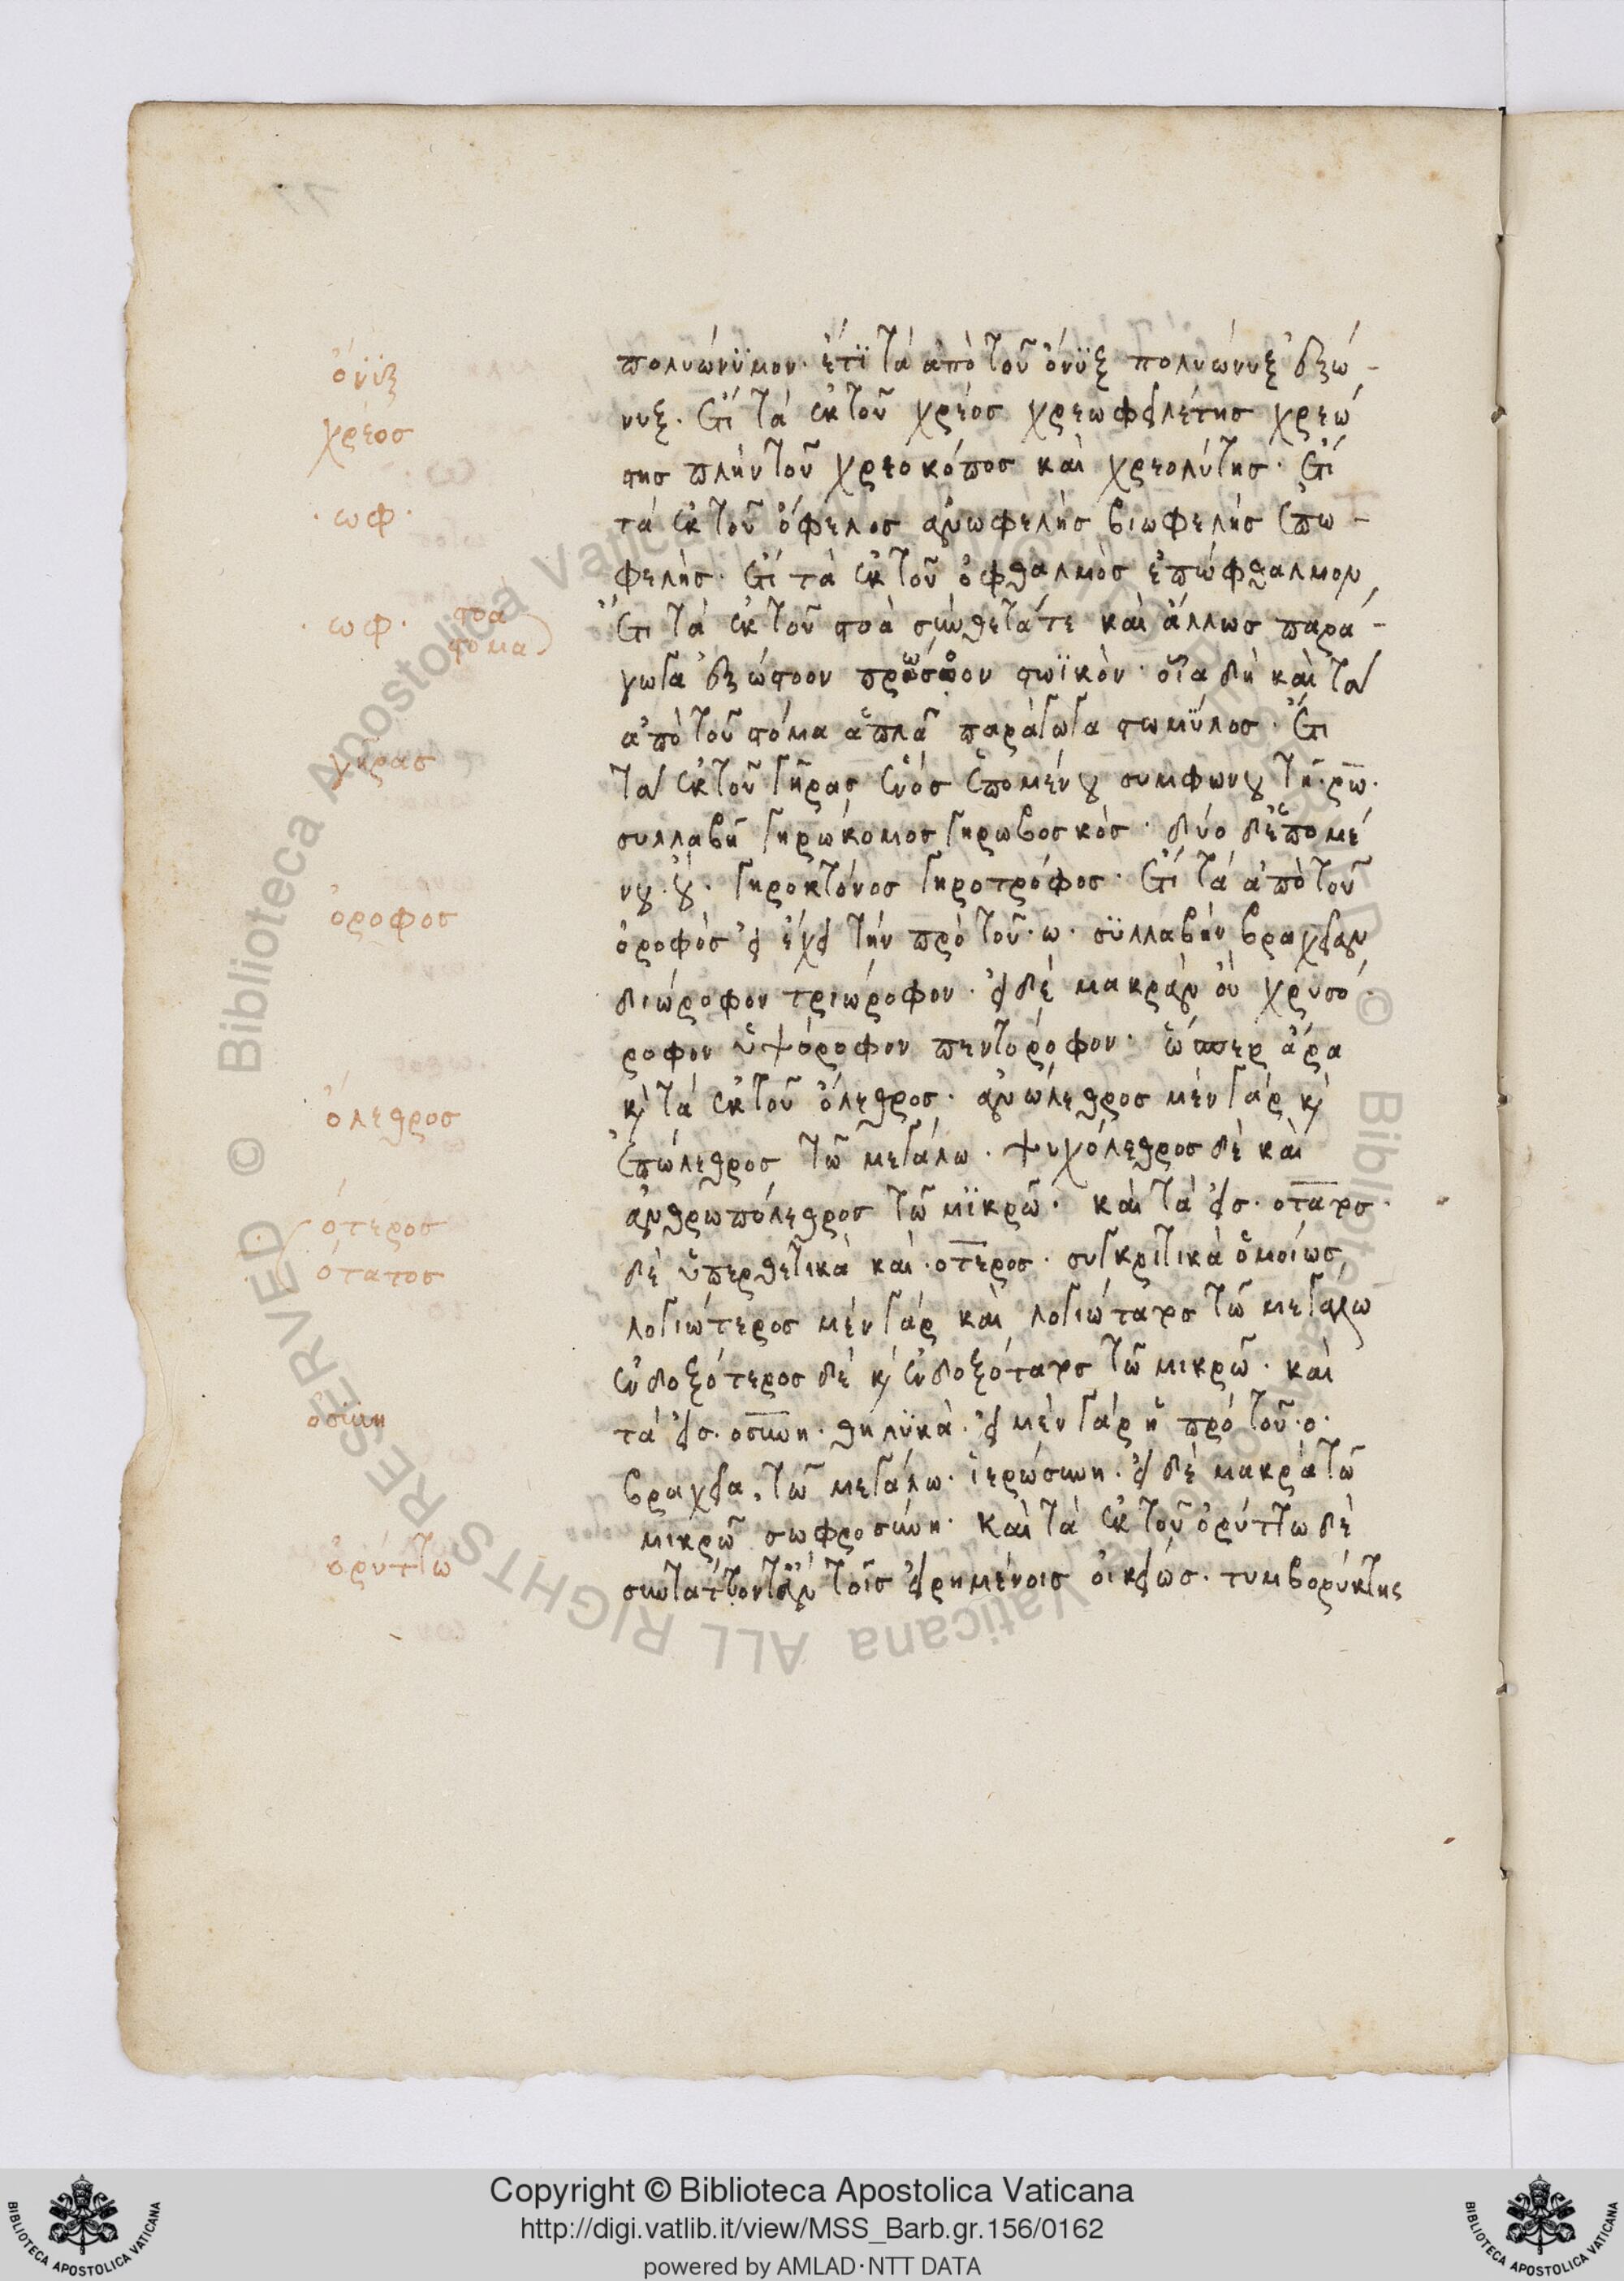 ὄνϋξ
χρέος
·ωφ·
·ωφ· στοά
στόμα
γῆρας
ὀροφός
ὄλεθρος
ότερος
ότατος
οσύνη
ὀρύττω
πολυώνϋμον· ἔτϊ τὰ ἀπὸ τοῦ ὄνϋξ πολυώνυξ ὀξώ-
νυξ. ἔτι τὰ ἐκ τοῦ χρέος χρεωφειλέτης χρεώ
στης πλὴν τοῦ χρεοκόπος καὶ χρεολύτης· ἔτι
τὰ ἐκ τοῦ ὄφελος ἀνωφελὴς βιωφελὴς ἐπω-
φελής· ἔτι τὰ ἐκ τοῦ ὀφθαλμὸς ἐπώφθαλμον,
ἔτι τὰ ἐκ τοῦ στοὰ σύνθετά τε καὶ ἄλλως παρά-
γωγα ὀξώστοον στωϊκόν· οἷα δὴ καὶ τὰ
ἀπὸ τοῦ στόμα ἁπλᾶ παράγωγα στωμϋλος· ἔτι
τὰ ἐκ τοῦ γῆρας ἑνὸς ἑπομένου συμφώνου τῇ·ρω·
συλλαβῇ γηρωκόμος γηρωβοσκός· δύο δὲ ἑπομέ
νου·ου· γηροκτόνος γηροτρόφος· ἔτι τὰ ἀπὸ τοῦ
ὀροφὸς εἰ ἔχει τὴν πρὸ τοῦ·ω· σϋλλαβὴν βραχεῖαν
διώροφον τριώροφον· εἰ δὲ μακρὰν οὐ χρυσό·
ροφον ὑψόροφον πεντόροφον· ὥσπερ ἄρα
καὶ τὰ ἐκ τοῦ ὄλεθρος· ἀνώλεθρος μὲν γὰρ καὶ
ἐπώλεθρος τῷ μεγάλω· ψυχόλεθρος δὲ καὶ
ἀνθρωπόλεθρος τῷ μϊκρῷ· καὶ τὰ εἰς·οτατος·
δὲ ὑπερθετικὰ καὶ·οτερος· συγκριτικὰ ὁμοίως,
λογιώτερος μὲν γὰρ καὶ λογιώτατος τῷ μεγάλω
ἐνδοξότερος δὲ καὶ ἐνδοξότατος τῷ μικρῷ· καὶ
τὰ εἰς·οσύνη· θηλϋκὰ· εἰ μὲν γὰρ ἡ πρὸ τοῦ·ο·
βραχεῖα, τῷ μεγάλω· ἱερώσυνη· εἰ δὲ μακρὰ τῷ
μικρῷ σωφροσύνη· καὶ τὰ ἐκ τοῦ ὀρύττω δὲ
συντάττονται τοῖς εἰρημένοις οἰκείως· τυμβορύκτης
Copyright © Biblioteca Apostolica Vaticana
http://digi.vatlib.it/view/MSS_Barb.gr.156/0162
powered by AMLAD·NTT DATA